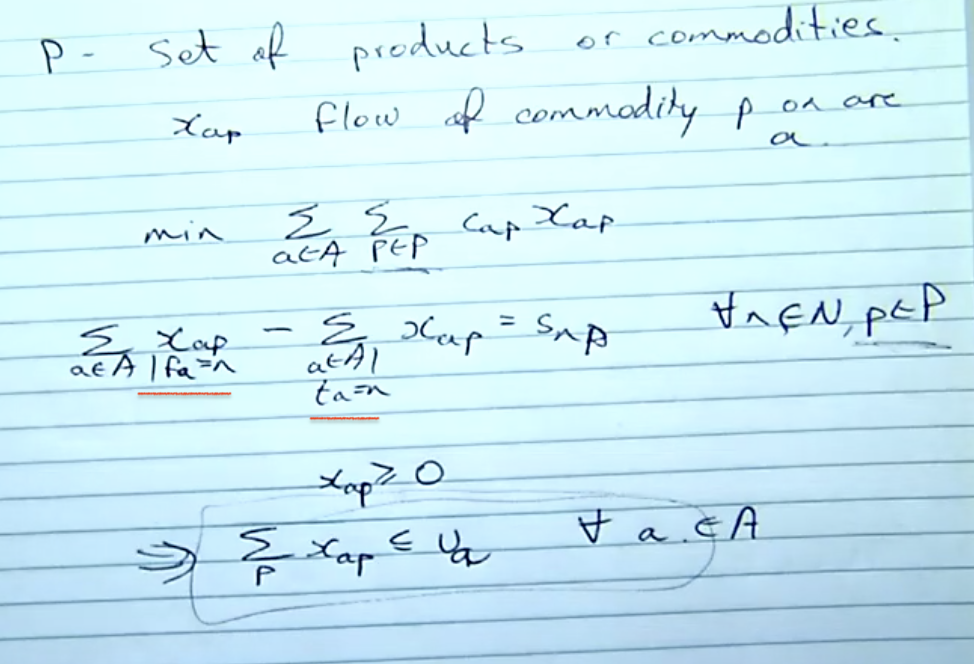 P - Set of products or commodities.
xap flow of commodity p on arc a.
min Σ a∈A Σ p∈P cap xap
Σ a∈A | fa=n xap - Σ a∈A | ta=n xap = snp ∀n∈N, p∈P
xap ≥ 0
⇒ Σ p xap ≤ ua ∀ a ∈ A